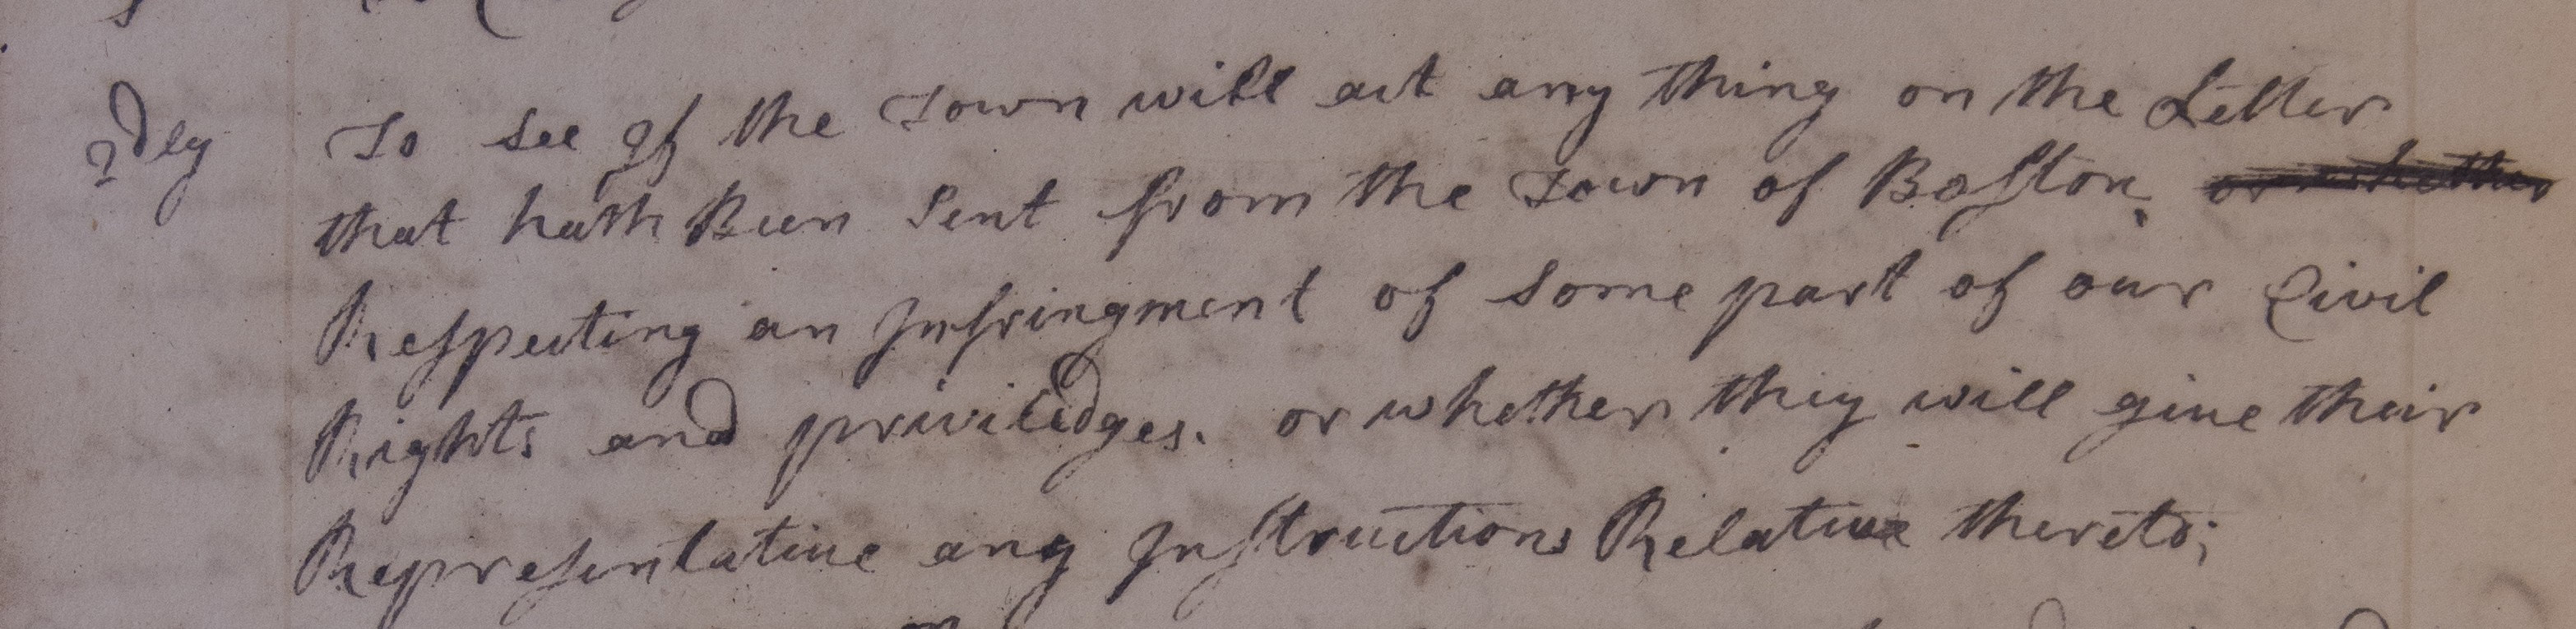 2dly To see If the Town will act any thing on the Letter
that hath Been Sent from the Town of Boston, or whether
Respecting an Infringment of Some part of our Civil
Rights and priviledges. or whether they will give their
Representative any Instructions Relative thereto;